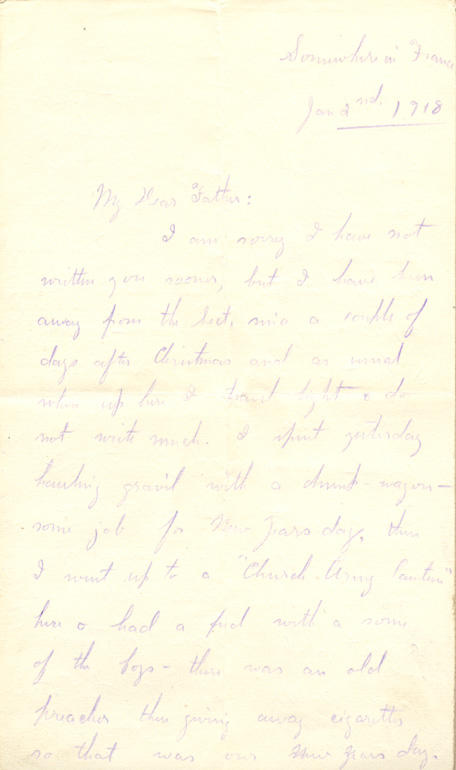 Somewhere in France
Jan 2nd. 1918
My Dear Father:
I am sorry I have not
written you sooner, but I have been
away from the Sect. since a couple of
days after Christmas and as usual
when up here I travel light & do
not write much. I spent yesterday
hauling gravel with a dump-wagon—
some job for New Years day, then
I went up to a "Church Army Canteen"
here & had a feed with a some
of the boys - there was an old
preacher there giving away cigarettes
so that was our New Years day.